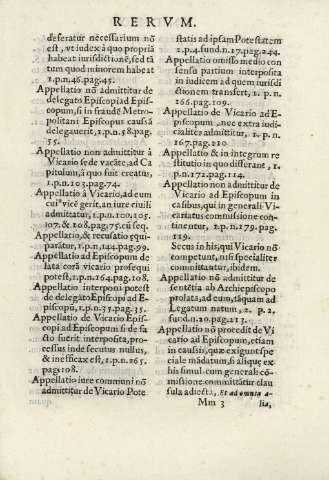 RERVM.
deferatur necessarium nõ
est, vt iudex à quo propriã
habeat iurisdictionẽ, sed tã
tum quod minorem habeat
1. p.n.46.pag.45.
Appellatio nõ admittitur de
delegato Episcopi ad Epis-
copum, si in fraudẽ Metro-
politani Episcopus causã
delegauerit, 1.p.n.58.pag.
55.
Appellatio non admittitur à
Vicario sede vacãte, ad Ca
pitulum, à quo fuit creatus,
1.p.n.103.pag.74.
Appellatio à Vicario, ad eum
cui' vicẽ gerit, an iure ciuili
admittatur, 1.p.n.100.105.
107. & 108.pag.75.cũ seq.
Appellatio, & recusatio ęqui-
paratur, 1.p.n.144.pag.99.
Appellatio ad Episcopum de
lata corã vicario prosequi
potest, 1.p.n.164.pag.108.
Appellatio interponi potest
de delegato Episcopi ad E-
piscopũ, 1.p.n.35.pag.35.
Appellatio de Vicario Episco
pi ad Episcopum si de fa-
cto fuerit interposita, pro-
cessus inde secutus nullus,
& inefficax est, 1.p.n.165.
pag.108.
Appellatio iure communi nõ
admittitur de Vicario Pote
statis ad ipsam Potestatem
2.p.4.fund.n.17.pag.244.
Appellatio omisso medio con
sensu partium interposita
in iudicem ad quem iurisdi
ctionem transfert, 1. p. n.
166.pag.109.
Appellatio de Vicario ad E-
piscopum, nec extra iudi-
cialiter admittitur, 1. p. n.
167.pag.110
Appellatio & in integrum re
stitutio in quo differant, 1.
p.n.172.pag.114.
Appellatio non admittitur de
Vicario ad Episcopum in
casibus, qui in generali Vi-
cariatus commissione con-
tinentur, 1.p.n.179.pag.
119.
Secus in his, qui Vicario nõ
competunt, nisi specialiter
committantur, ibidem.
Appellatio nõ admittitur de
sentẽtia ab Archiepiscopo
prolata, ad eum, tãquam ad
Legatum natum, 2. p. 2.
fund.n.20.pag.213.
Appellatio nõ procedit de Vi
cario ad Episcopum, etiam
in causis, quæ exigunt spe-
ciale mãdatum, si alique ex
his simul cum generali cõ-
missione committãtur clau
sula adiecta, Et ad omnia a-
Mm 3 lia,